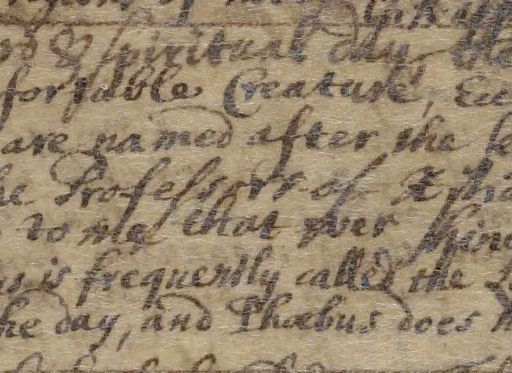 & spiritual day the
fortable Creature,
are named after the
Professors of
to me that ever shine
is frequently called the
the day, and Phœbus does